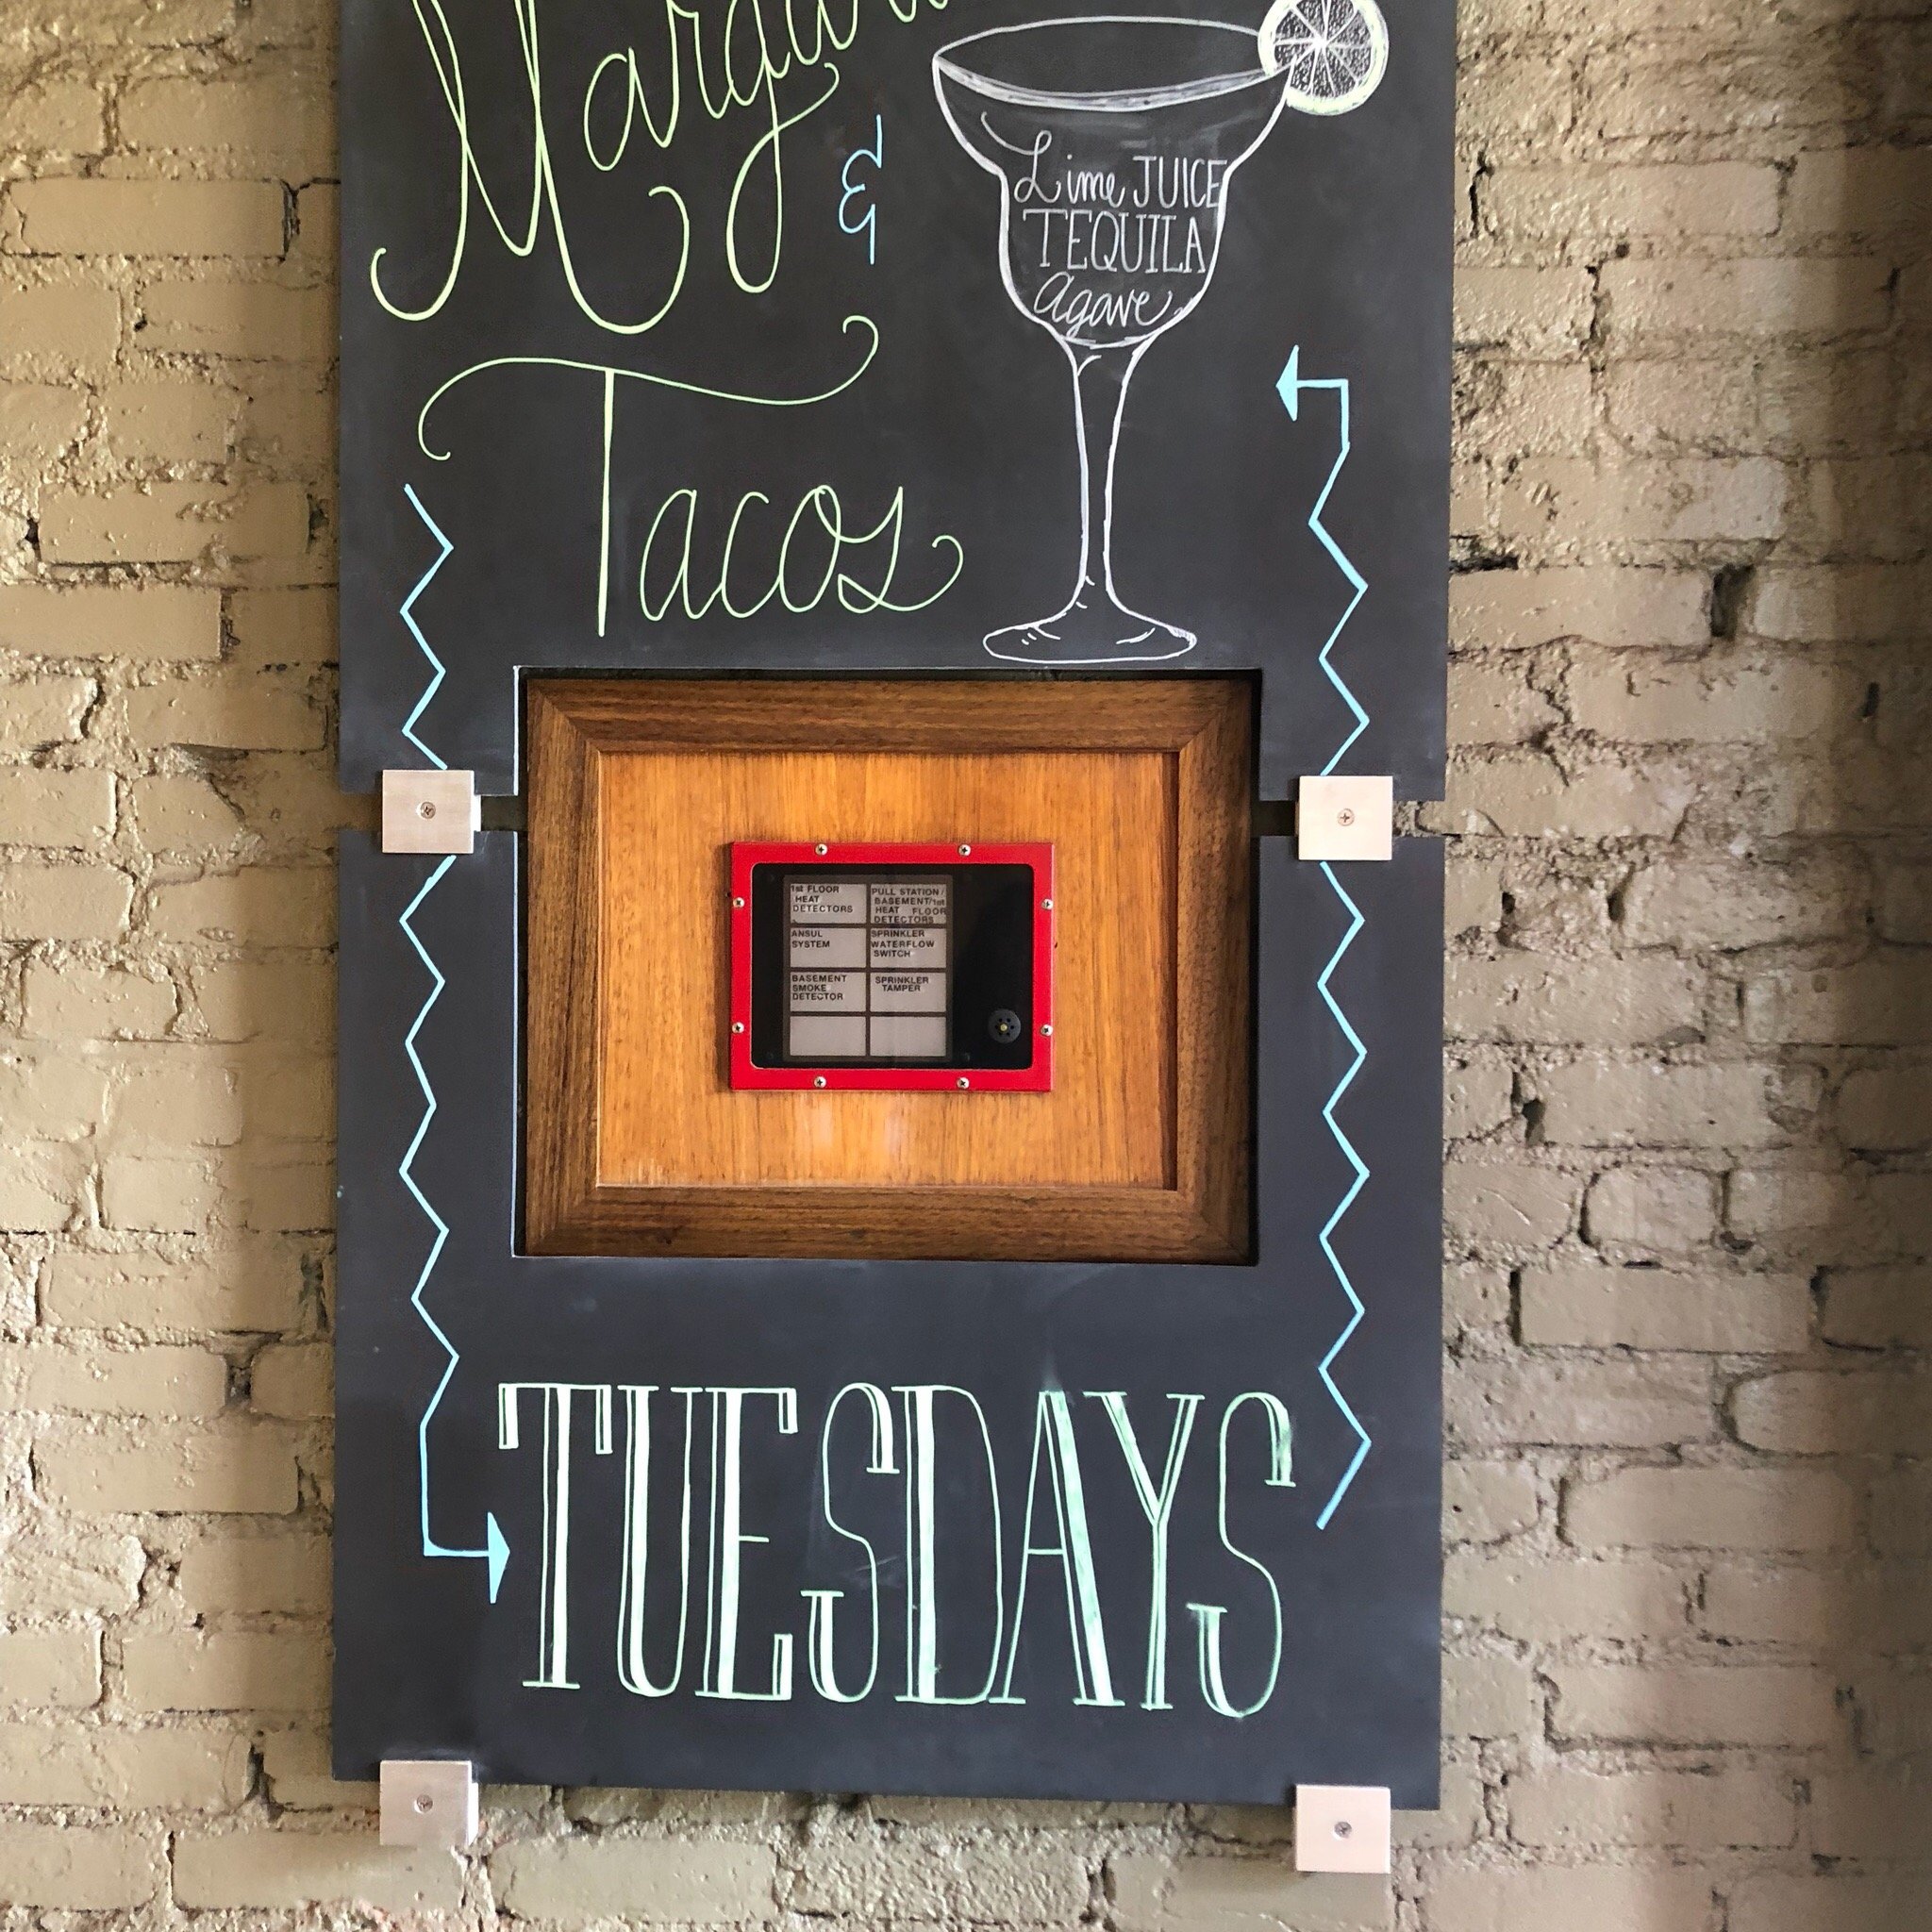 &
Lime JUICE
TEQUILA
agave
Tacos
1st FLOOR
HEAT
DETECTORS
PULL STATION/
BASEMENT/1st
HEAT FLOOR
DETECTORS
ANSUL
SYSTEM
SPRINKLER
WATERFLOW
SWITCH
BASEMENT
SMOKE
DETECTOR
SPRINKLER
TAMPER
TUESDAYS